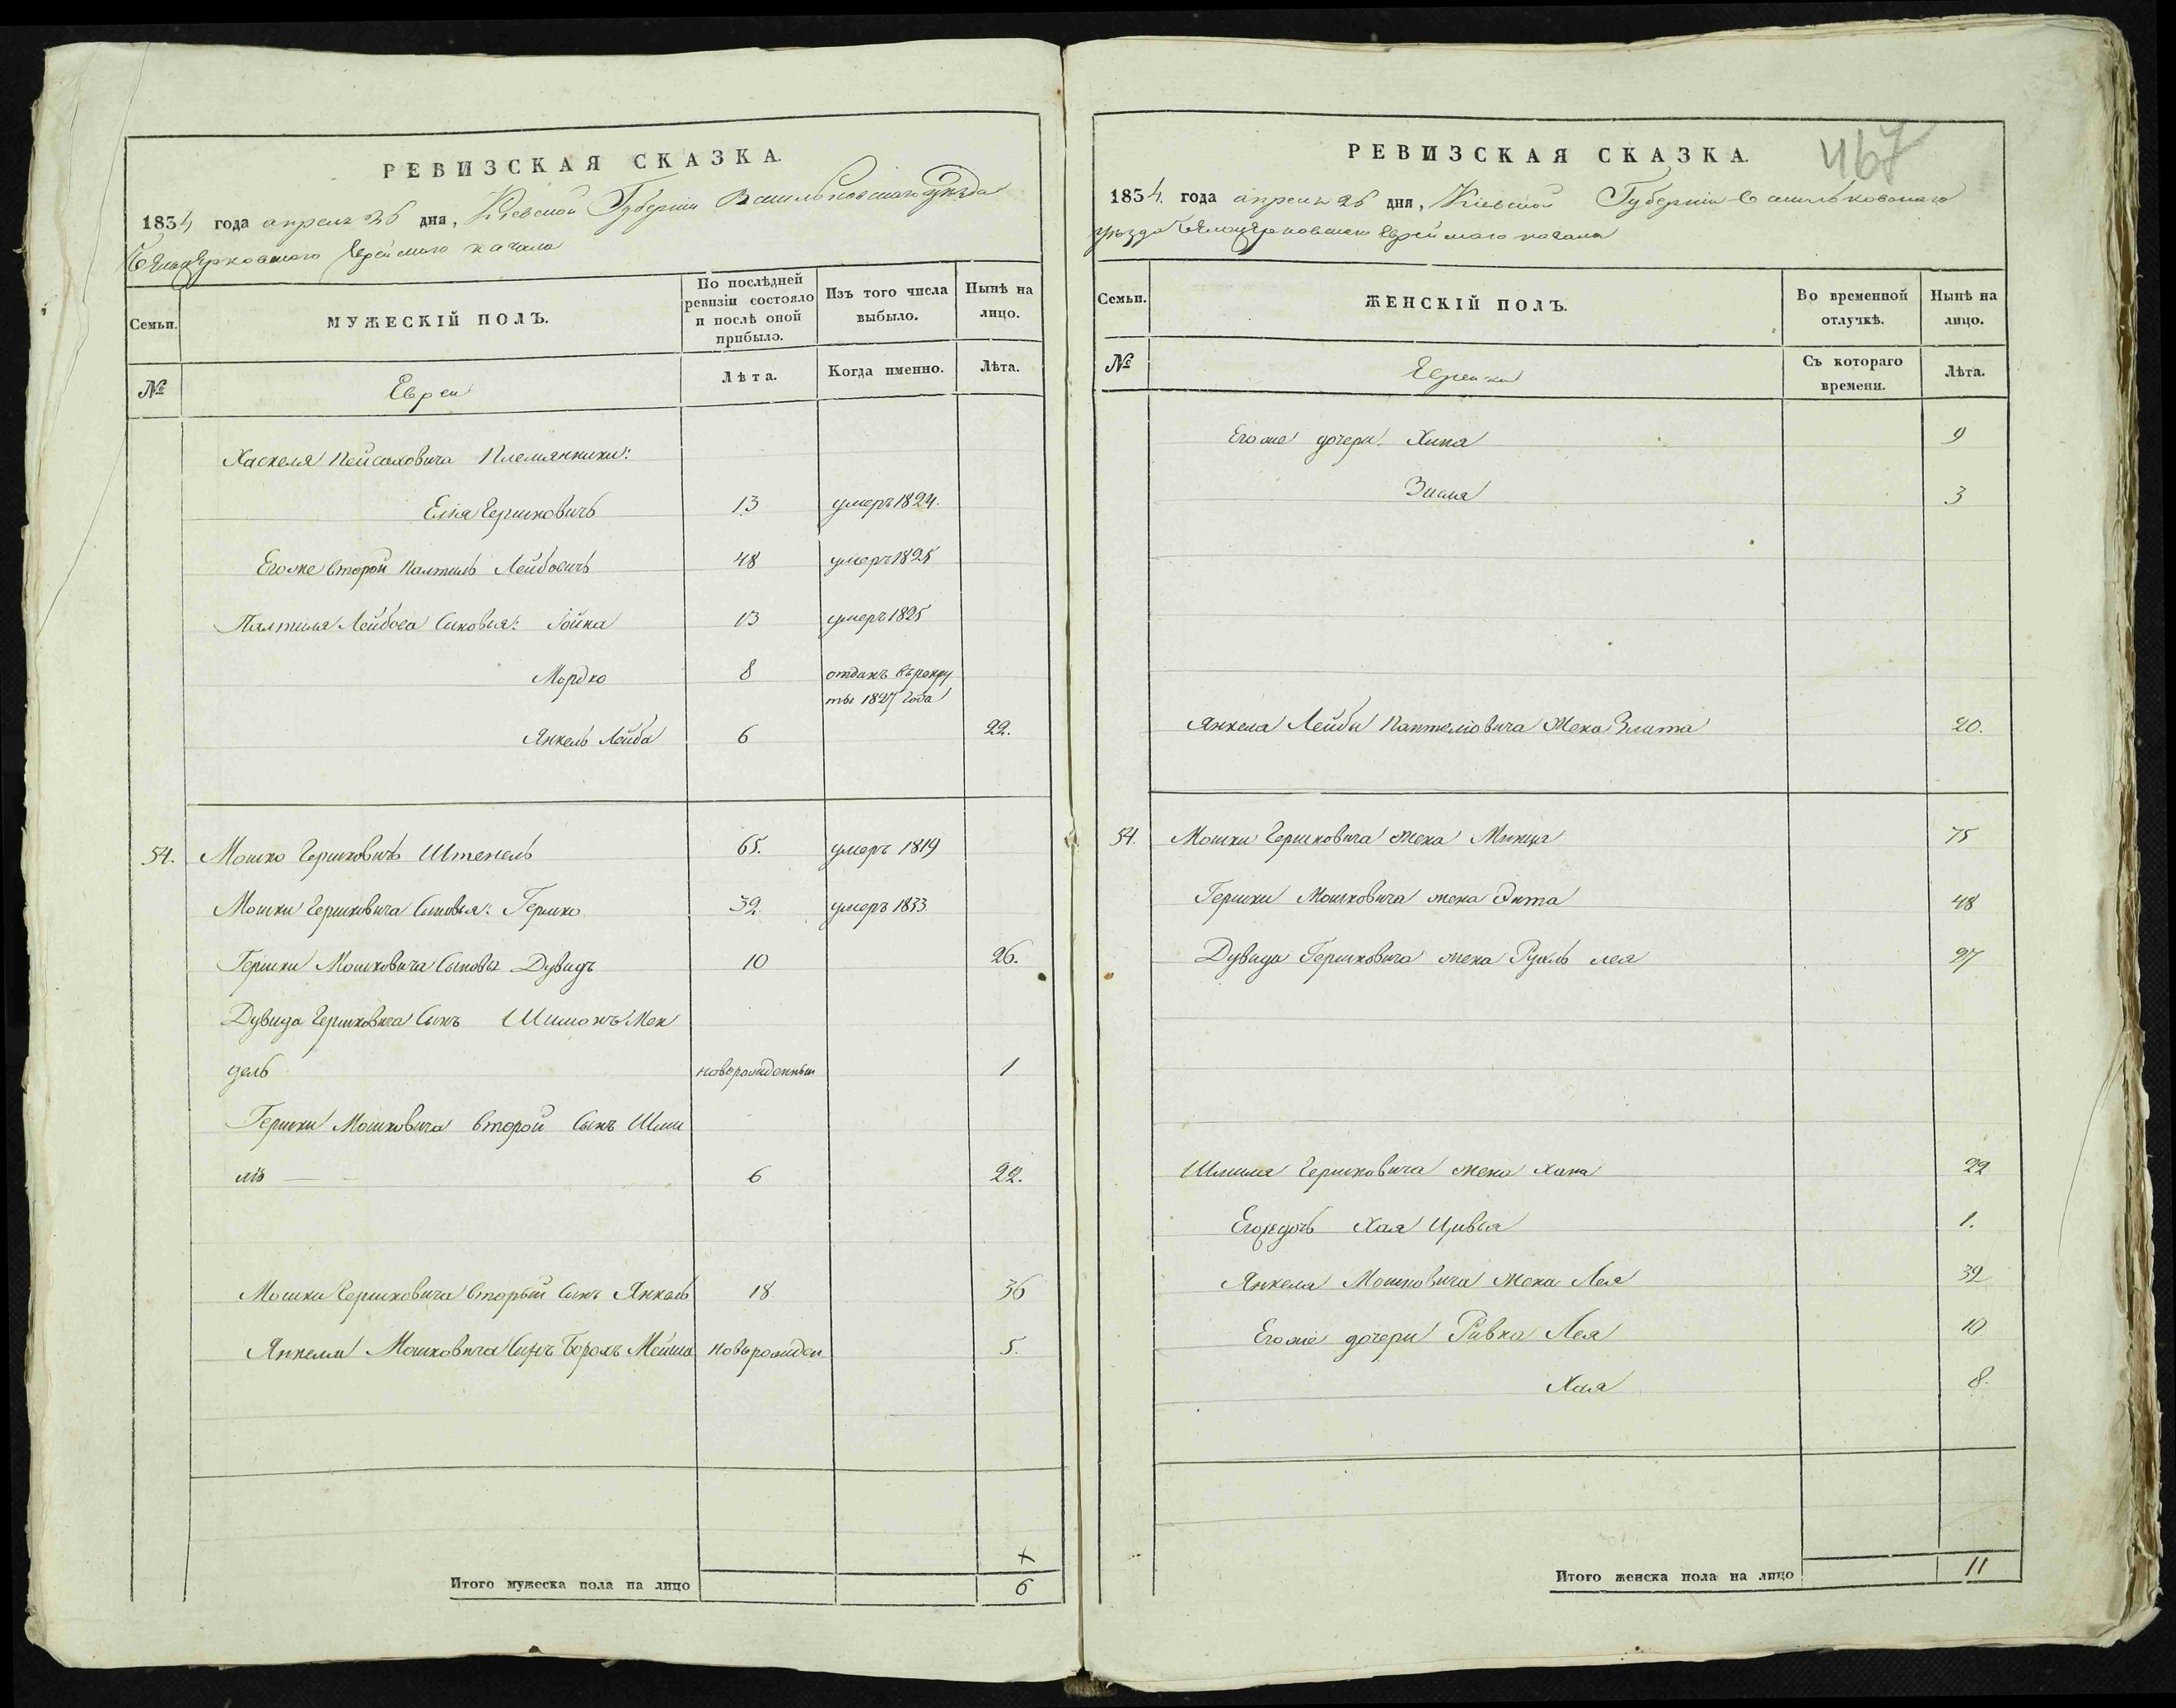 РЕВИЗСКАЯ СКАЗКА.
1834 года апреля 26 дня, Кіевской Губерніи Васильковского уезда
Белоцерковского Еврейского кагала
Семьи.
МУЖЕСКІЙ ПОЛЪ.
По послѣдней ревизіи состояло и послѣ оной прибыло.
Изъ того числа выбыло.
Нынѣ на лицо.
№
Евреи
Лѣта.
Когда именно.
Лѣта.
Хаскеля Пейсаховича Племянники:
Елія Гершковичъ 13 умеръ 1824.
Егоже второй Палтиль Лейбовичъ 48 умеръ 1825
Палтиля Лейбова Сыновья: Іойна 13 умеръ 1825
Мордко 8 отданъ въ рекру
ты 1827 года
Янкель Лейба 6 22.
54. Мошко Гершковичъ Штенель 65. умеръ 1819
Мошки Гершковича Сыновья: Гершко 32. умеръ 1833
Гершки Мошковича Сыновья Дувидъ 10 26.
Дувида Гершковича Сынъ Шимонъ Мен
дель новорожденный 1
Гершки Мошковича второй Сынъ Шми
ль 6 22.
Мошки Гершковича вторый Сынъ Янкель 18 36
Янкеля Мошковича Сынъ Борохъ Мейша новорожден 5.
Итого мужеска пола на лицо 6
467
РЕВИЗСКАЯ СКАЗКА.
1834. года апреля 26 дня, Кіевской Губерніи Васильковского
уезда Белоцерковского Еврейского кагала
Семьи.
ЖЕНСКІЙ ПОЛЪ.
Во временной отлучкѣ.
Нынѣ на лицо.
№
Еврейки
Съ котораго времени.
Лѣта.
Егоже дочери Хина 9
Зисля 3
Янкеля Лейби Палтеліовича Жена Злата 20.
54. Мошки Гершковича жена Минца 75
Гершки Мошковича жена Эита 48
Дувида Гершковича жена Рухль лея 27
Шмиля Гершковича жена Хана 22
Егожедочь Хая Цивья 1.
Янкеля Мошковича жена Лея 32
Егоже дочери Ривка Лея 10
Хая 8.
Итого женска пола на лицо 11